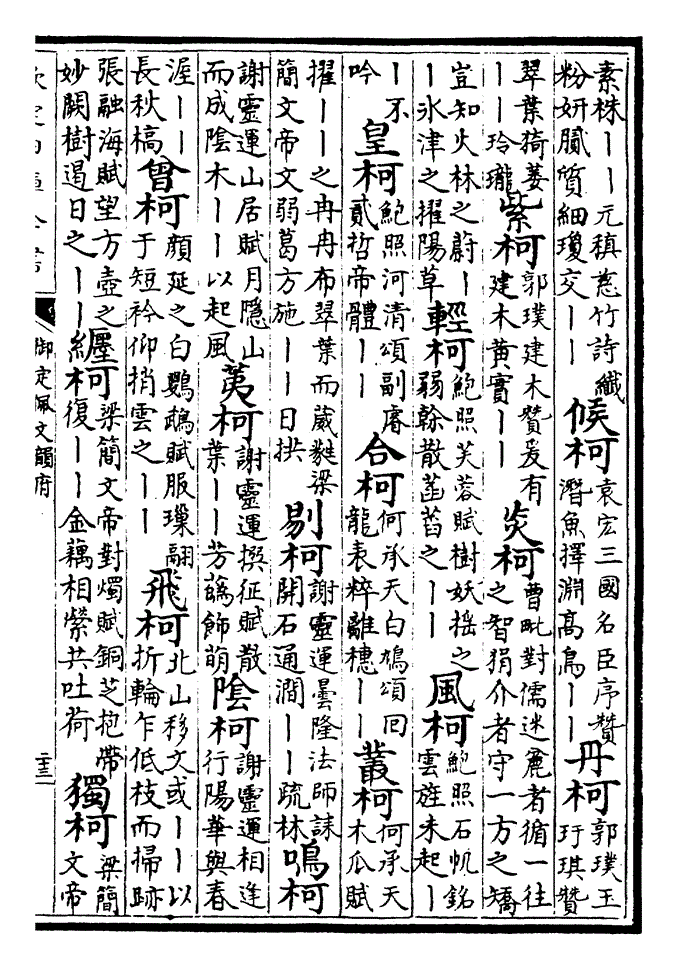 素株丨丨元稹慈竹詩纖
粉妍膩質細瓊交丨丨
候柯
袁宏三國名臣序贊
潛魚擇淵高鳥丨丨
丹柯
郭璞玉
玗琪贊
翠葉猗萎
丨丨玲瓏
紫柯
郭璞建木贊爰有
建木黃實丨丨
炎柯
曹毗對儒迷麄者循一往
之智狷介者守一方之矯
豈知火林之蔚丨
丨氷津之擢陽草
輕柯
鮑照芙蓉賦樹妖揺之
弱榦散菡萏之丨丨
風柯
鮑照石帆銘
雲旌未起丨
丨不
吟
皇柯
鮑照河清頌副睿
貳哲帝體丨丨
合柯
何承天白鳩頌回
龍表粹離穗丨丨
叢柯
何承天
木瓜賦
擢丨丨之冉冉布翠葉而葳蕤梁
簡文帝文弱葛方施丨丨日拱
剔柯
謝靈運曇隆法師誄
開石通澗丨丨疏林
鳴柯
謝靈運山居賦月隱山
而成隂木丨丨以起風
荑柯
謝靈運撰征賦散
葉丨丨芳蘤飾萌
隂柯
謝靈運相逢
行陽華與春
渥丨丨
長秋槁
曾柯
顔延之白鸚鵡賦服璅翮
于短衿仰捎雲之丨丨
飛柯
北山移文或丨丨以
折輪乍低枝而掃跡
張融海賦望方壺之
妙闕樹遏日之丨丨
纒柯
梁簡文帝對燭賦銅芝抱帶
復丨丨金藕相縈共吐荷
獨柯
梁簡
文帝
御定佩文韻府
二十三